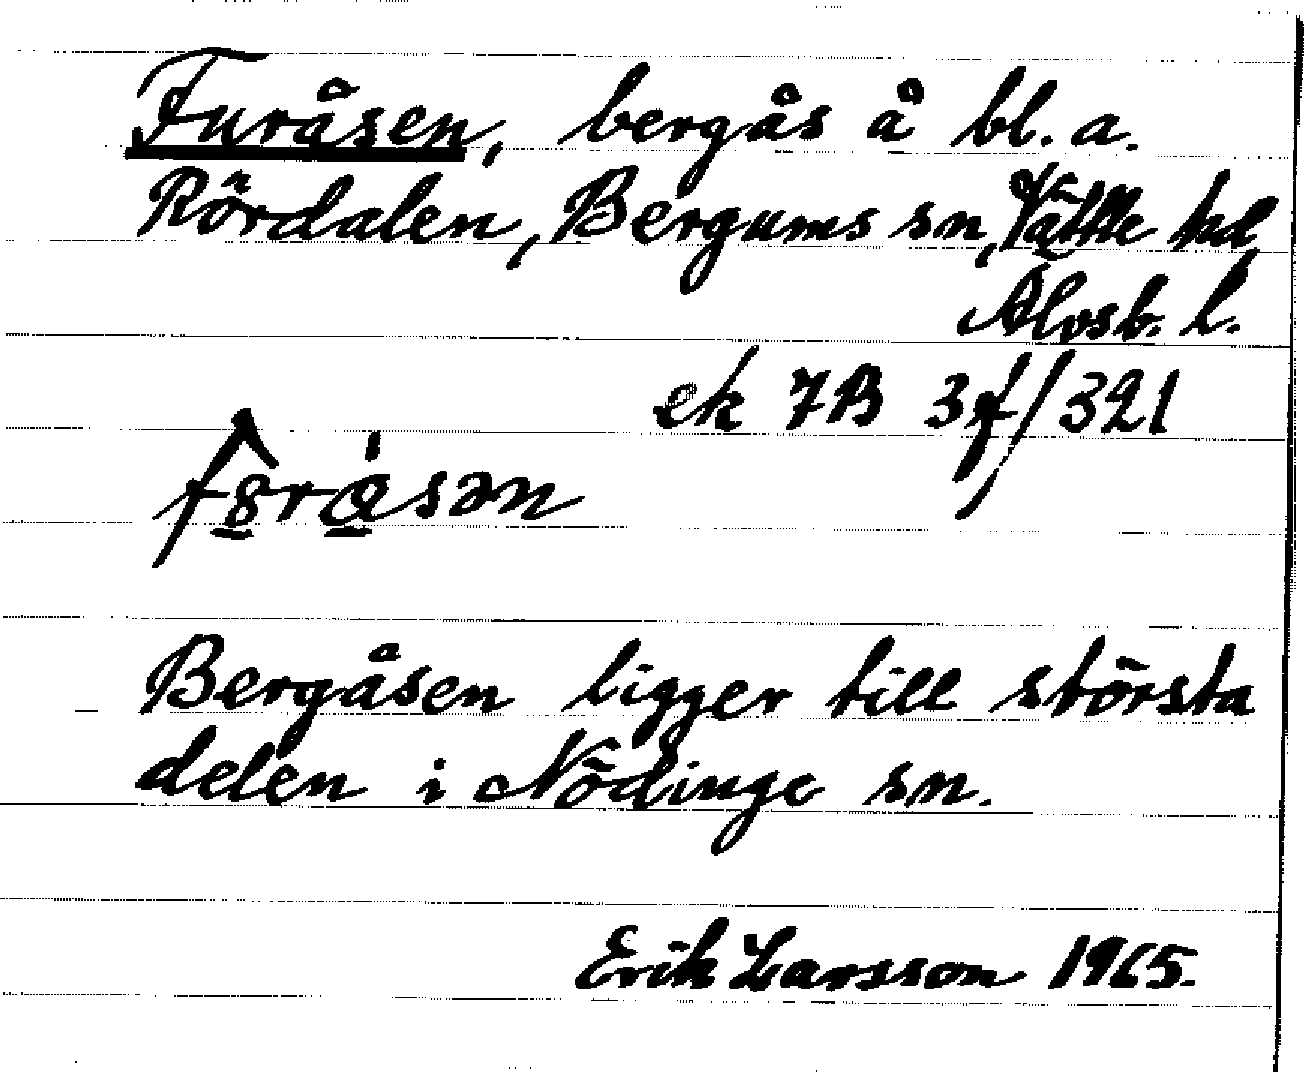 Furåsen, bergås å bl. a.
Rördalen, Bergums sn, Vättle hd
Älvsb. l.
ek 7B 3f/321
Bergåsen ligger till största
delen i Nödinge sn.
Erik Larsson 1965.